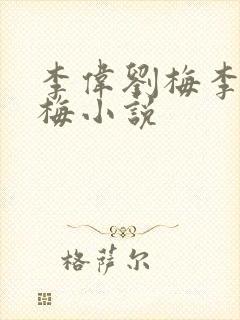 李偉劉梅李
梅小説
格萨尔